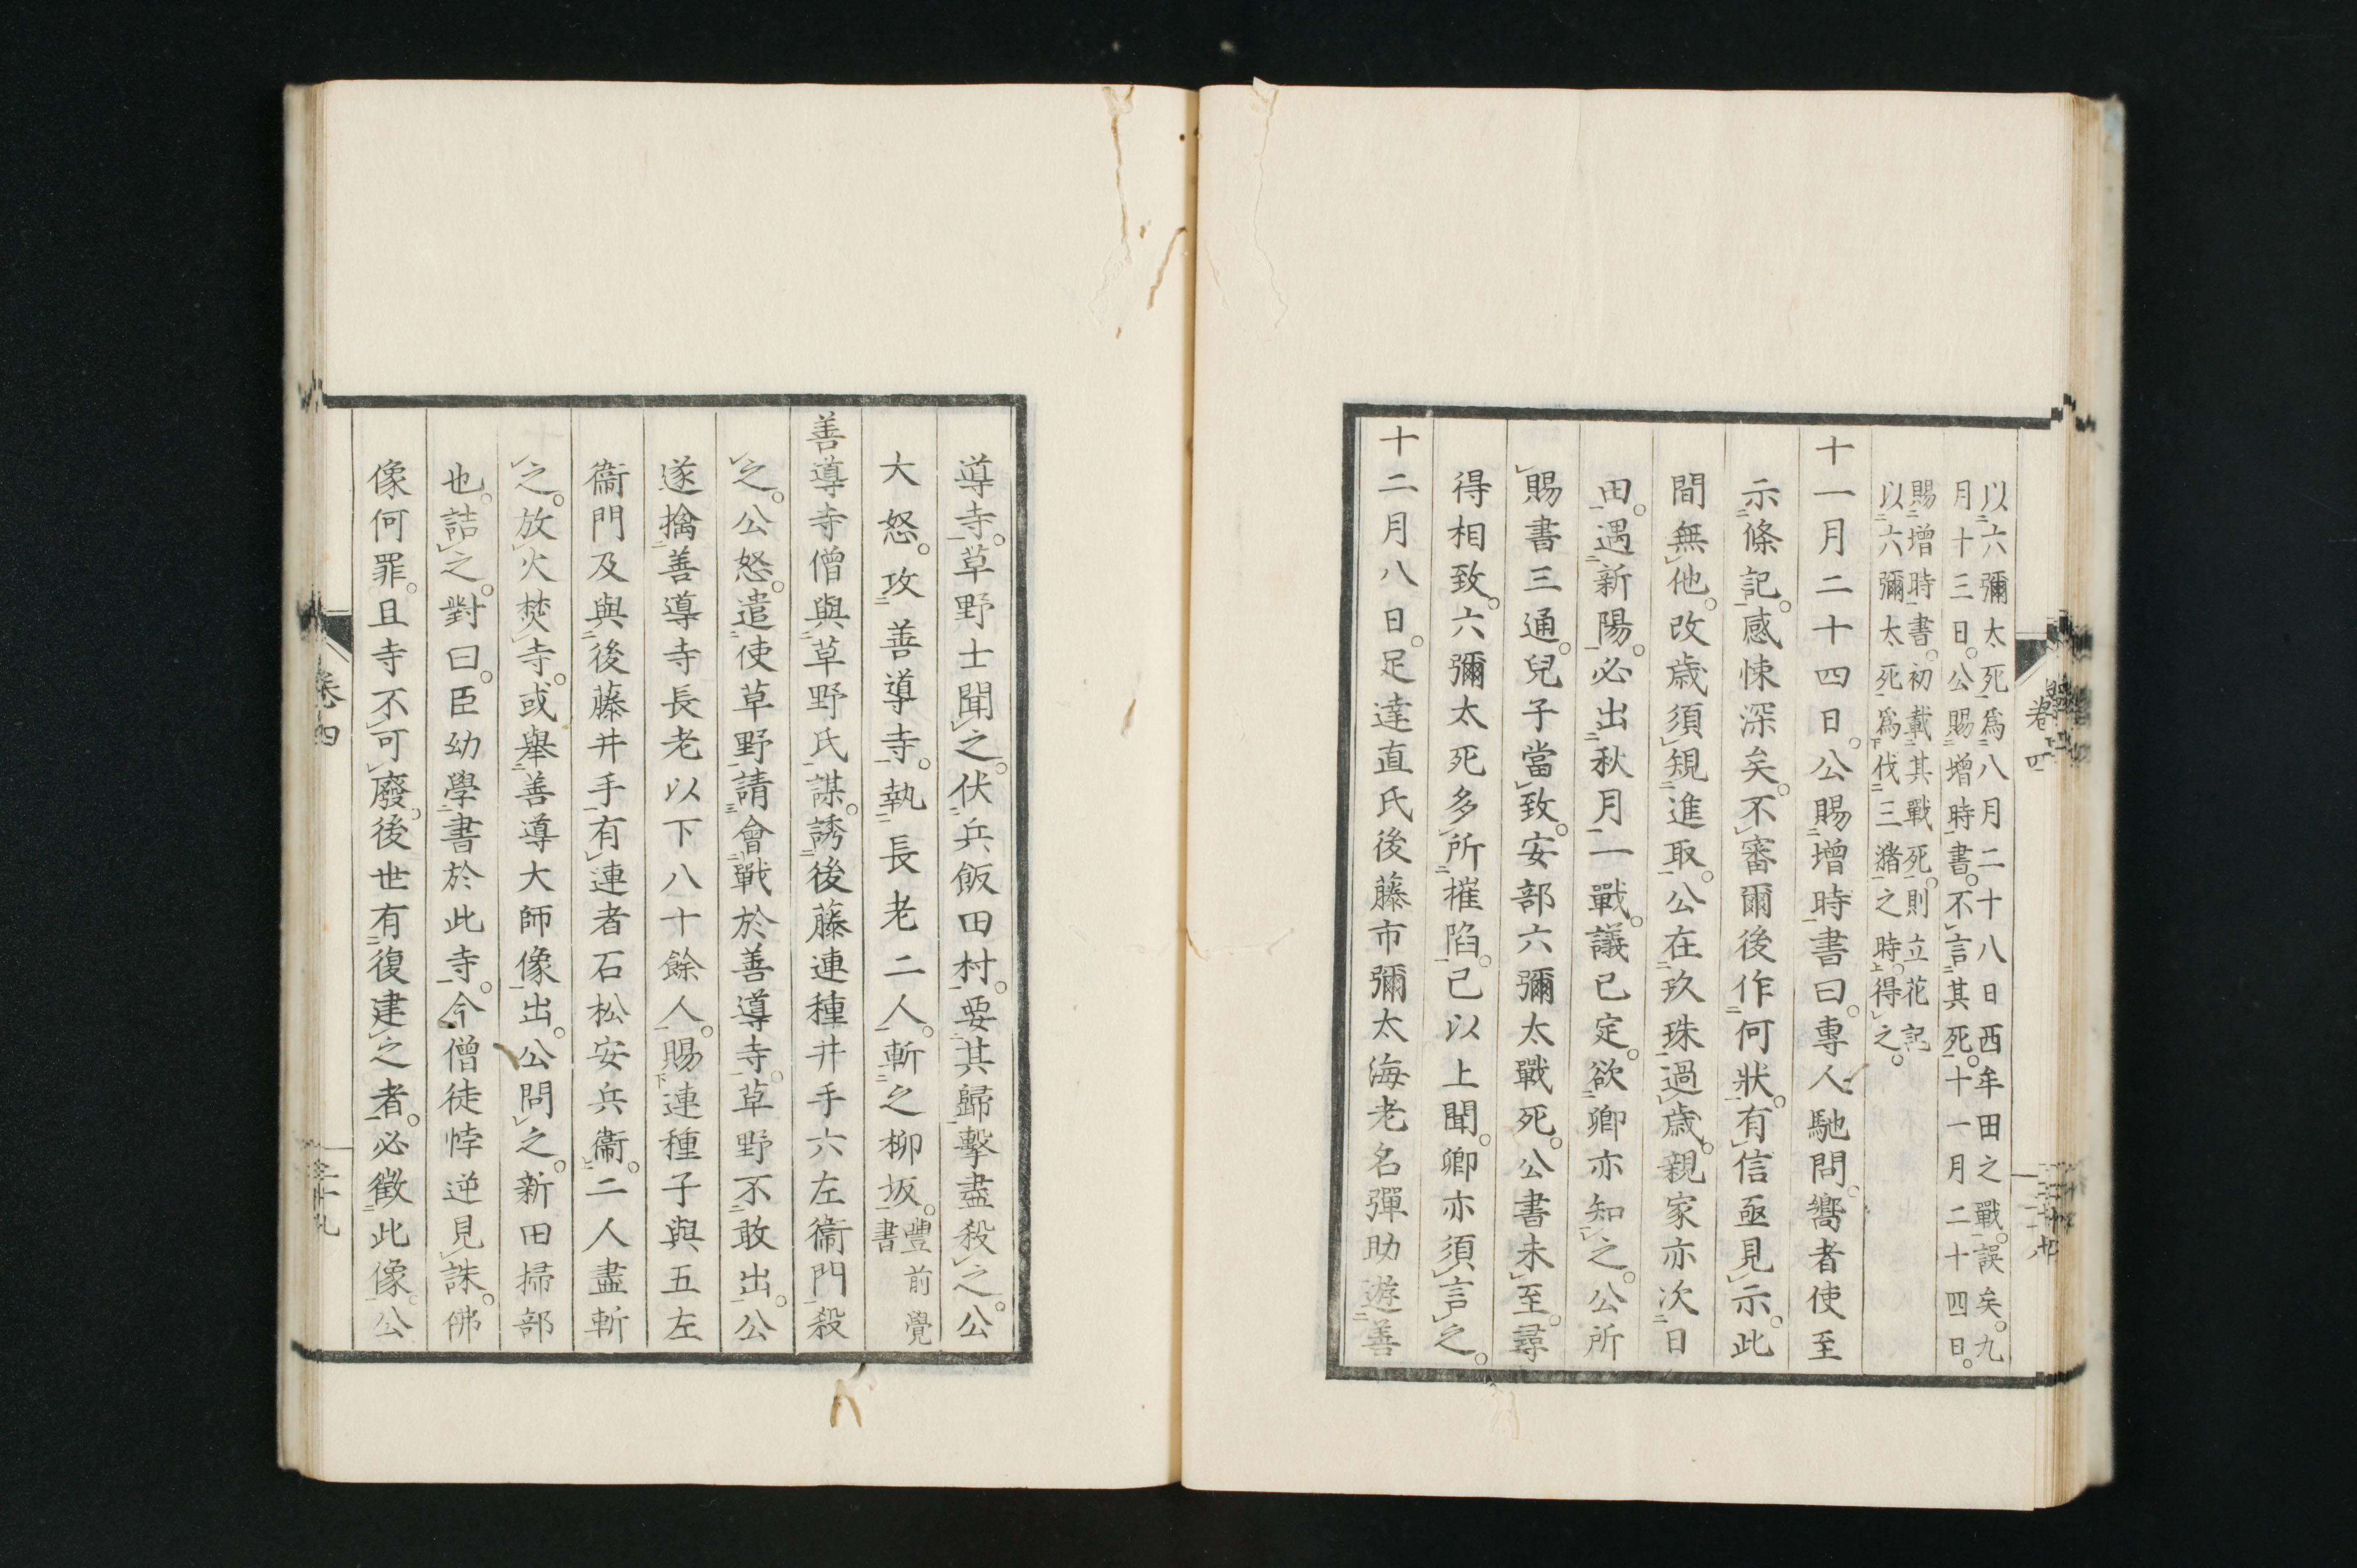 以六彌太死爲八月二十八日西牟田之戰。誤矣。九
月十三日。公賜增時書。不言其死。十一月二十四日。
賜增時書。初載其戰死。則立花記
以六彌太死爲伐三潴之時。得之。
十一月二十四日。公賜增時書曰。專人馳問。嚮者使至
示條記。感悚深矣。不審爾後作何狀。有信亟見示。此
間無他。改歲須規進取。公在玖珠過歲。親家亦次日
田。遇新陽。必出秋月一戰。議已定。欲卿亦知之。公所
賜書三通。兒子當致。安部六彌太戰死。公書未至。尋
得相致。六彌太死多所摧陷。已以上聞。卿亦須言之。
十二月八日。足達直氏後藤市彌太海老名彈助遊善
卷四
導寺。草野士聞之。伏兵飯田村。要其歸擊盡殺之。公
大怒。攻善導寺。執長老二人。斬之柳坂。豐前覺
書
善導寺僧與草野氏謀。誘後藤連種井手六左衞門殺
之。公怒。遣使草野請會戰於善導寺。草野不敢出。公
遂擒善導寺長老以下八十餘人。賜連種子與五左
衞門及與後藤井手有連者石松安兵衞。二人盡斬
之。放火焚寺。或舉善導大師像出。公問之。新田掃部
也。詰之。對曰。臣幼學書於此寺。今僧徒悖逆見誅。佛
像何罪。且寺不可廢。後世有復建之者。必徵此像。公
卷四